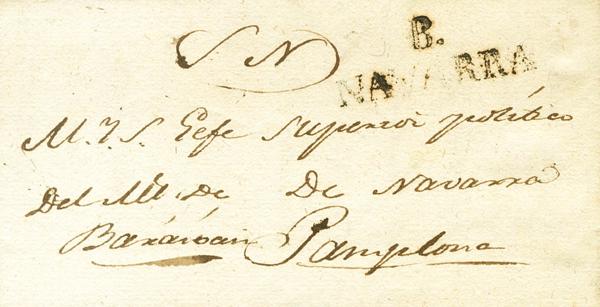 S N
B.
NAVARRA
M. Y. S. Gefe Superior político
Del de De Navarra
Barásoain Pamplona